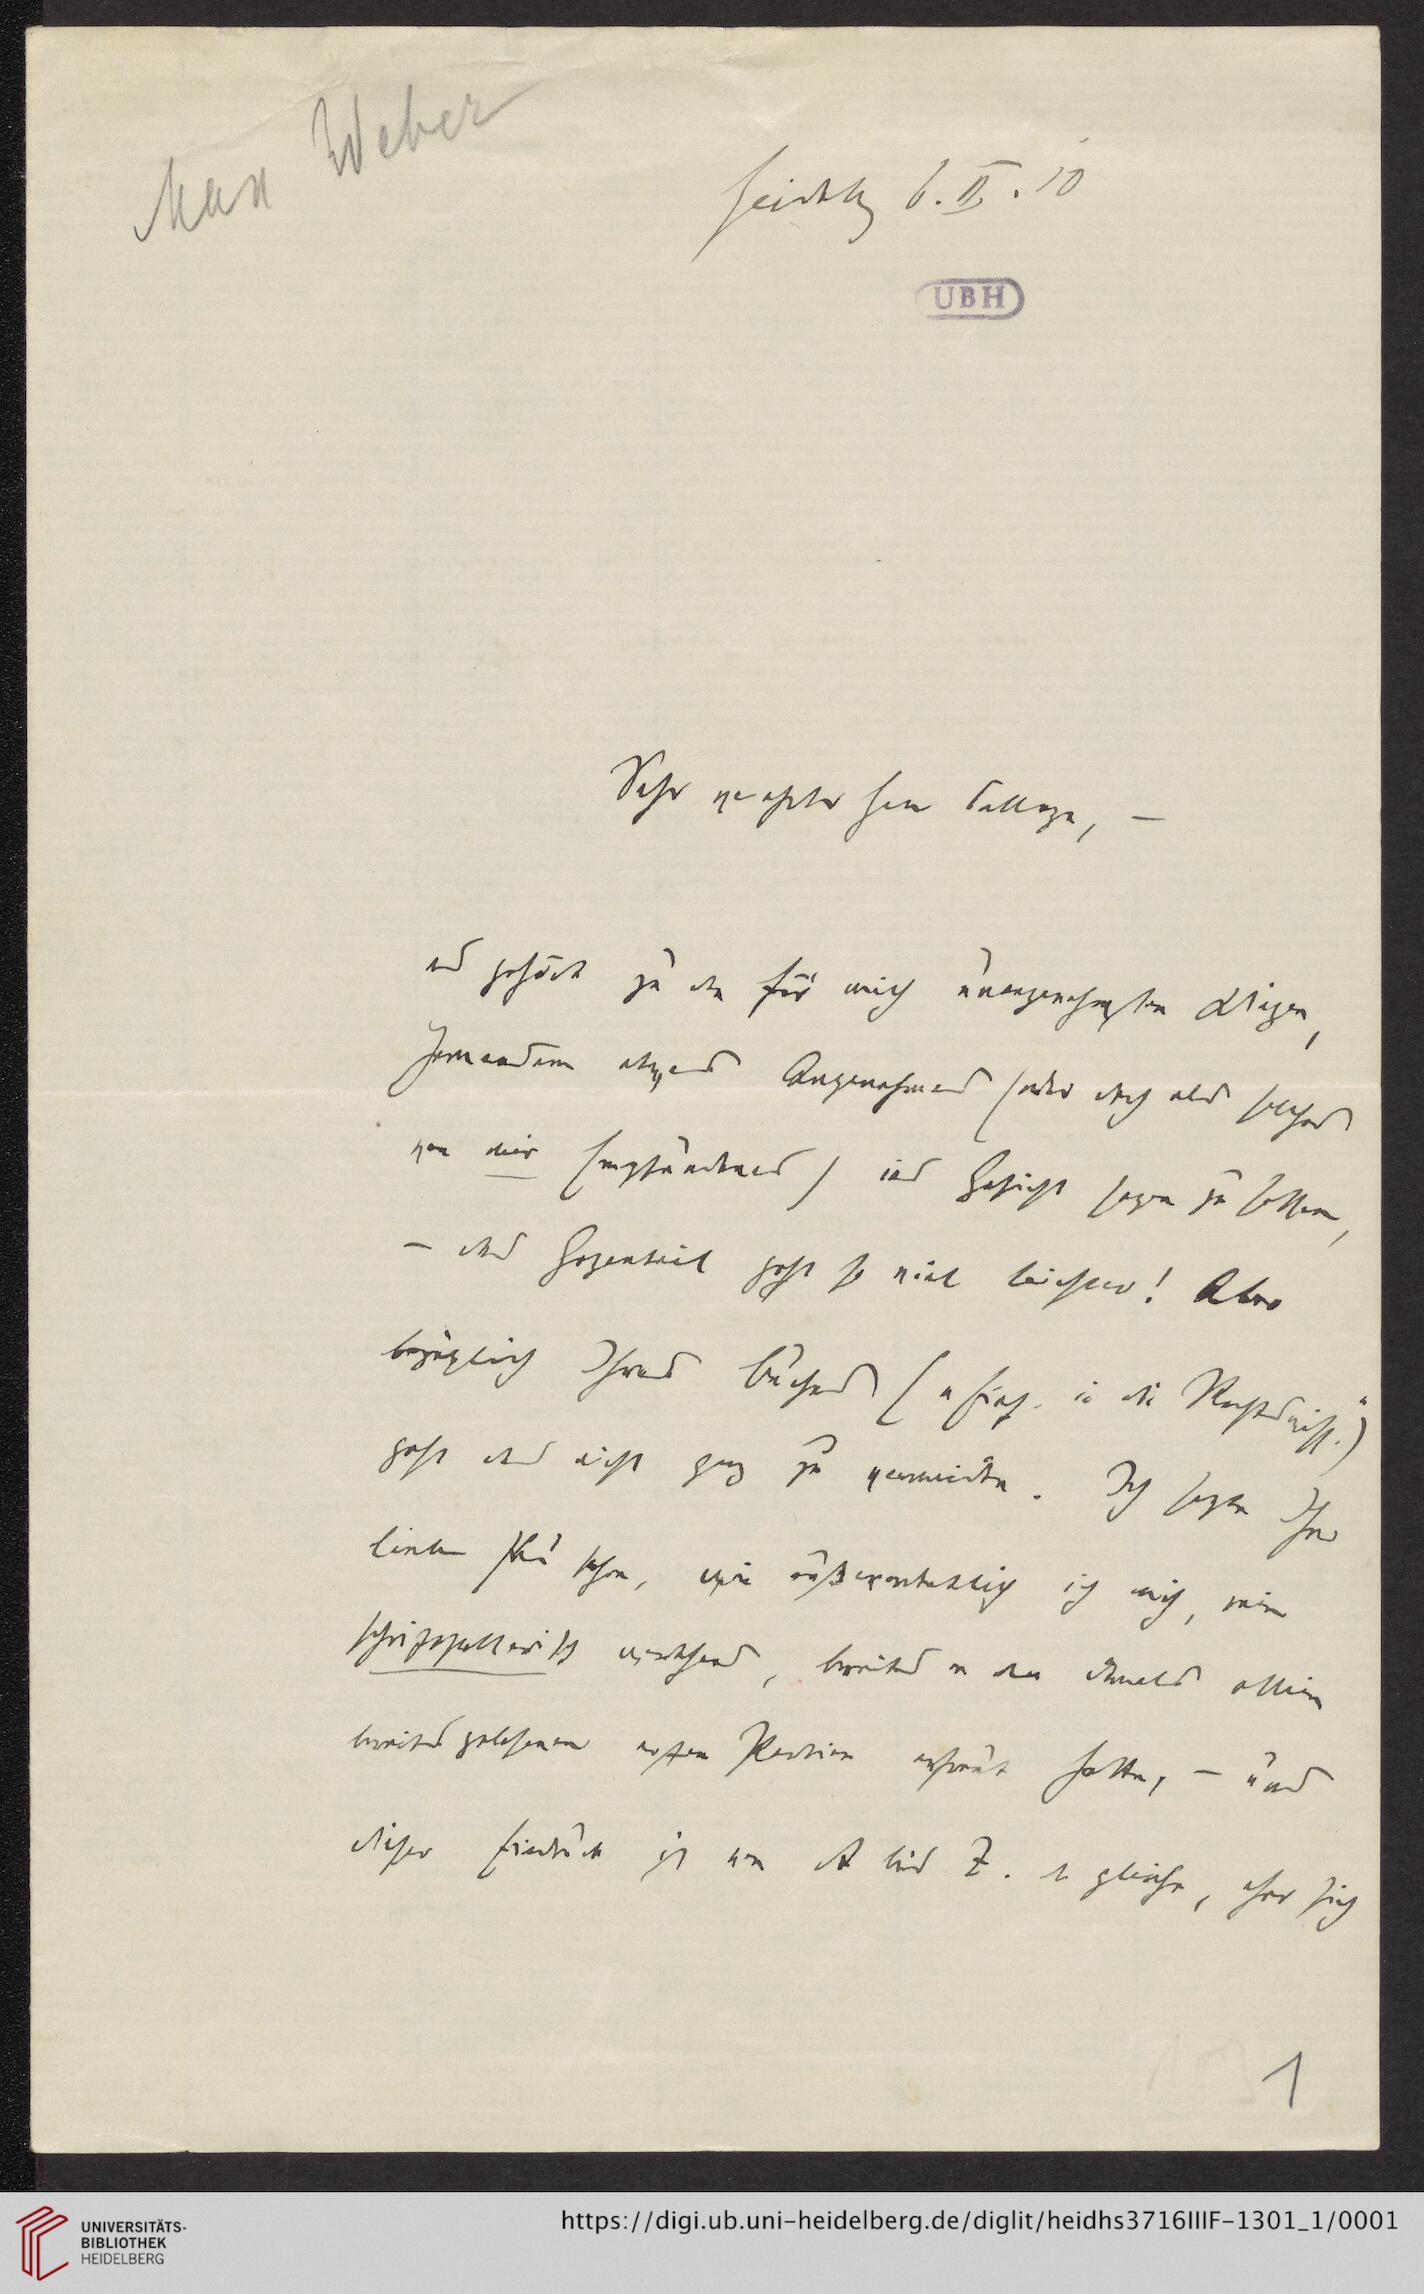 Max Weber
Heidelbg 6. II. 10
UBH
Sehr verehrter Herr College, –
es gehört zu den für mich unangenehmsten Dingen,
Jemandem etwas Angenehmes (oder doch als solches
von mir Empfundenes) ins Gesicht sagen zu sollen,
– das Gegenteil geht so viel leichter! Aber
bezüglich Ihres Buches ("Einf. in die Rechtswiss.")
geht das nicht ganz zu vermeiden. Ich sagte Ihrer
lieben Frau schon, wie außerordentlich ich mich, rein
schriftstellerisch, bereits an den damals allein
bereits gelesenen ersten Partien erfreut hatte, – und
dieser Eindruck ist von A bis Z. der gleiche, eher sich
1
UNIVERSITÄTS-
BIBLIOTHEK
HEIDELBERG
https://digi.ub.uni-heidelberg.de/diglit/heidhs3716IIIF-1301_1/0001